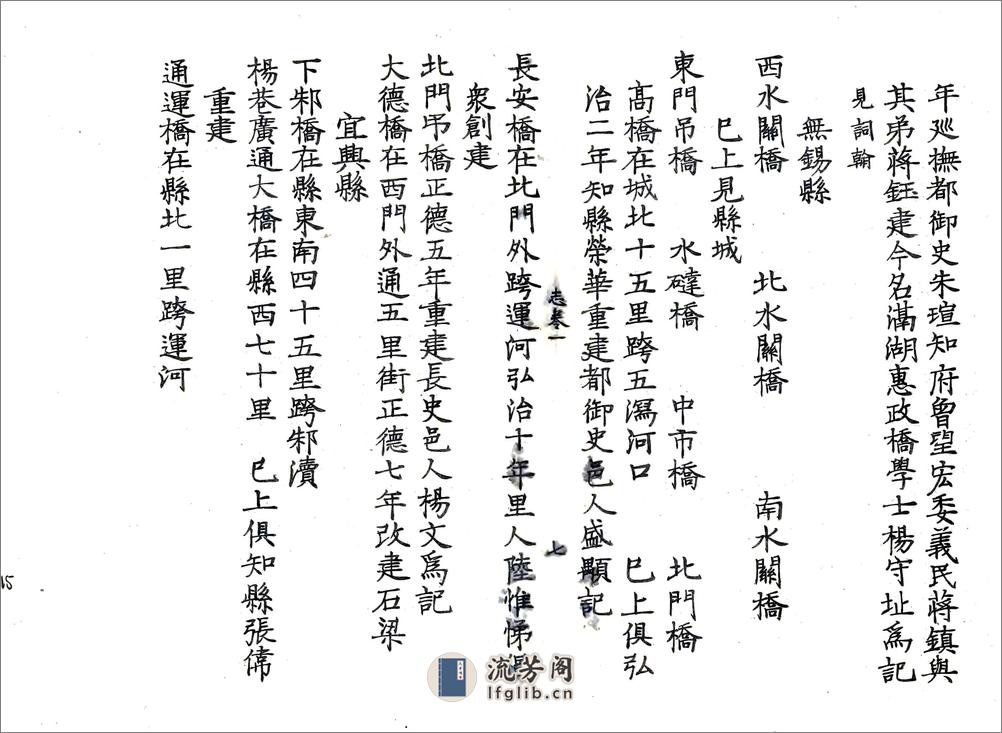 年廵撫都御史朱瑄知府曾望宏委義民蔣鎮與
其弟蔣鈺建今名滿湖惠政橋學士楊守址爲記
見詞翰
無錫縣
西水關橋 北水關橋 南水關橋
巳上見縣城
東門吊橋 水䃮橋 中市橋 北門橋
高橋在城北十五里跨五瀉河口 巳上俱弘
治二年知縣榮華重建都御史邑人盛顒記
志卷一 七
長安橋在北門外跨運河弘治十年里人陸惟悌
衆創建
北門吊橋正德五年重建長史邑人楊文爲記
大德橋在西門外通五里街正德七年改建石梁
宜興縣
下邾橋在縣東南四十五里跨邾瀆
楊巷廣通大橋在縣西七十里 巳上俱知縣張偉
重建
通運橋在縣北一里跨運河
15
流芳阁
lfglib.cn